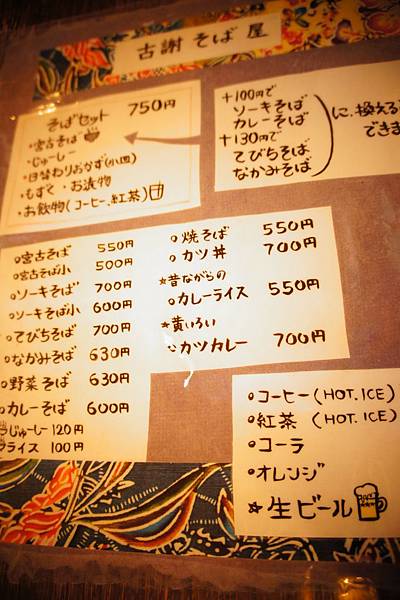 古謝そば屋
そばセット 750円
・宮古そば
・じゅーしー
・日替わりおかず(小皿)
・もずく・お漬物
・お飲物(コーヒー、紅茶)
+100円で
ソーキそば
カレーそば
+130円で
てびちそば
なかみそば
に、換える
できま
宮古そば 550円
宮古そば小 500円
ソーキそば 700円
ソーキそば小 600円
てびちそば 700円
なかみそば 630円
野菜そば 630円
カレーそば 600円
じゅーしー 120円
ライス 100円
焼そば 550円
カツ丼 700円
★昔ながらの
カレーライス 550円
★黄いろい
カツカレー 700円
コーヒー(HOT. ICE)
紅茶(HOT. ICE)
コーラ
オレンジ
★生ビール